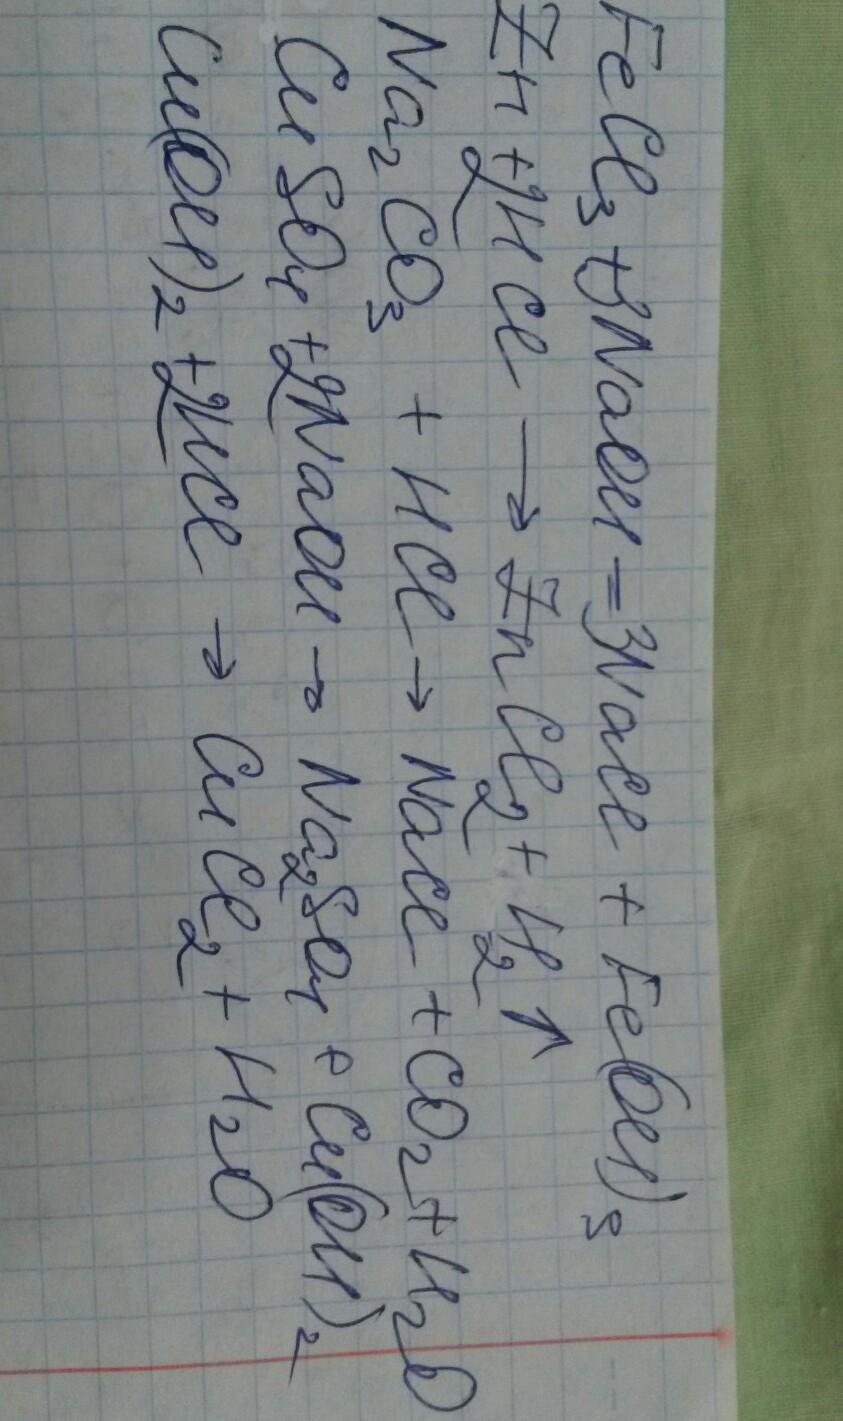 FeCl₃ + 3NaOH = 3NaCl + Fe(OH)₃
Zn + 2HCl → ZnCl₂ + H₂↑
Na₂CO₃ + HCl → NaCl + CO₂ + H₂O
CuSO₄ + 2NaOH → Na₂SO₄ + Cu(OH)₂
Cu(OH)₂ + 2HCl → CuCl₂ + H₂O